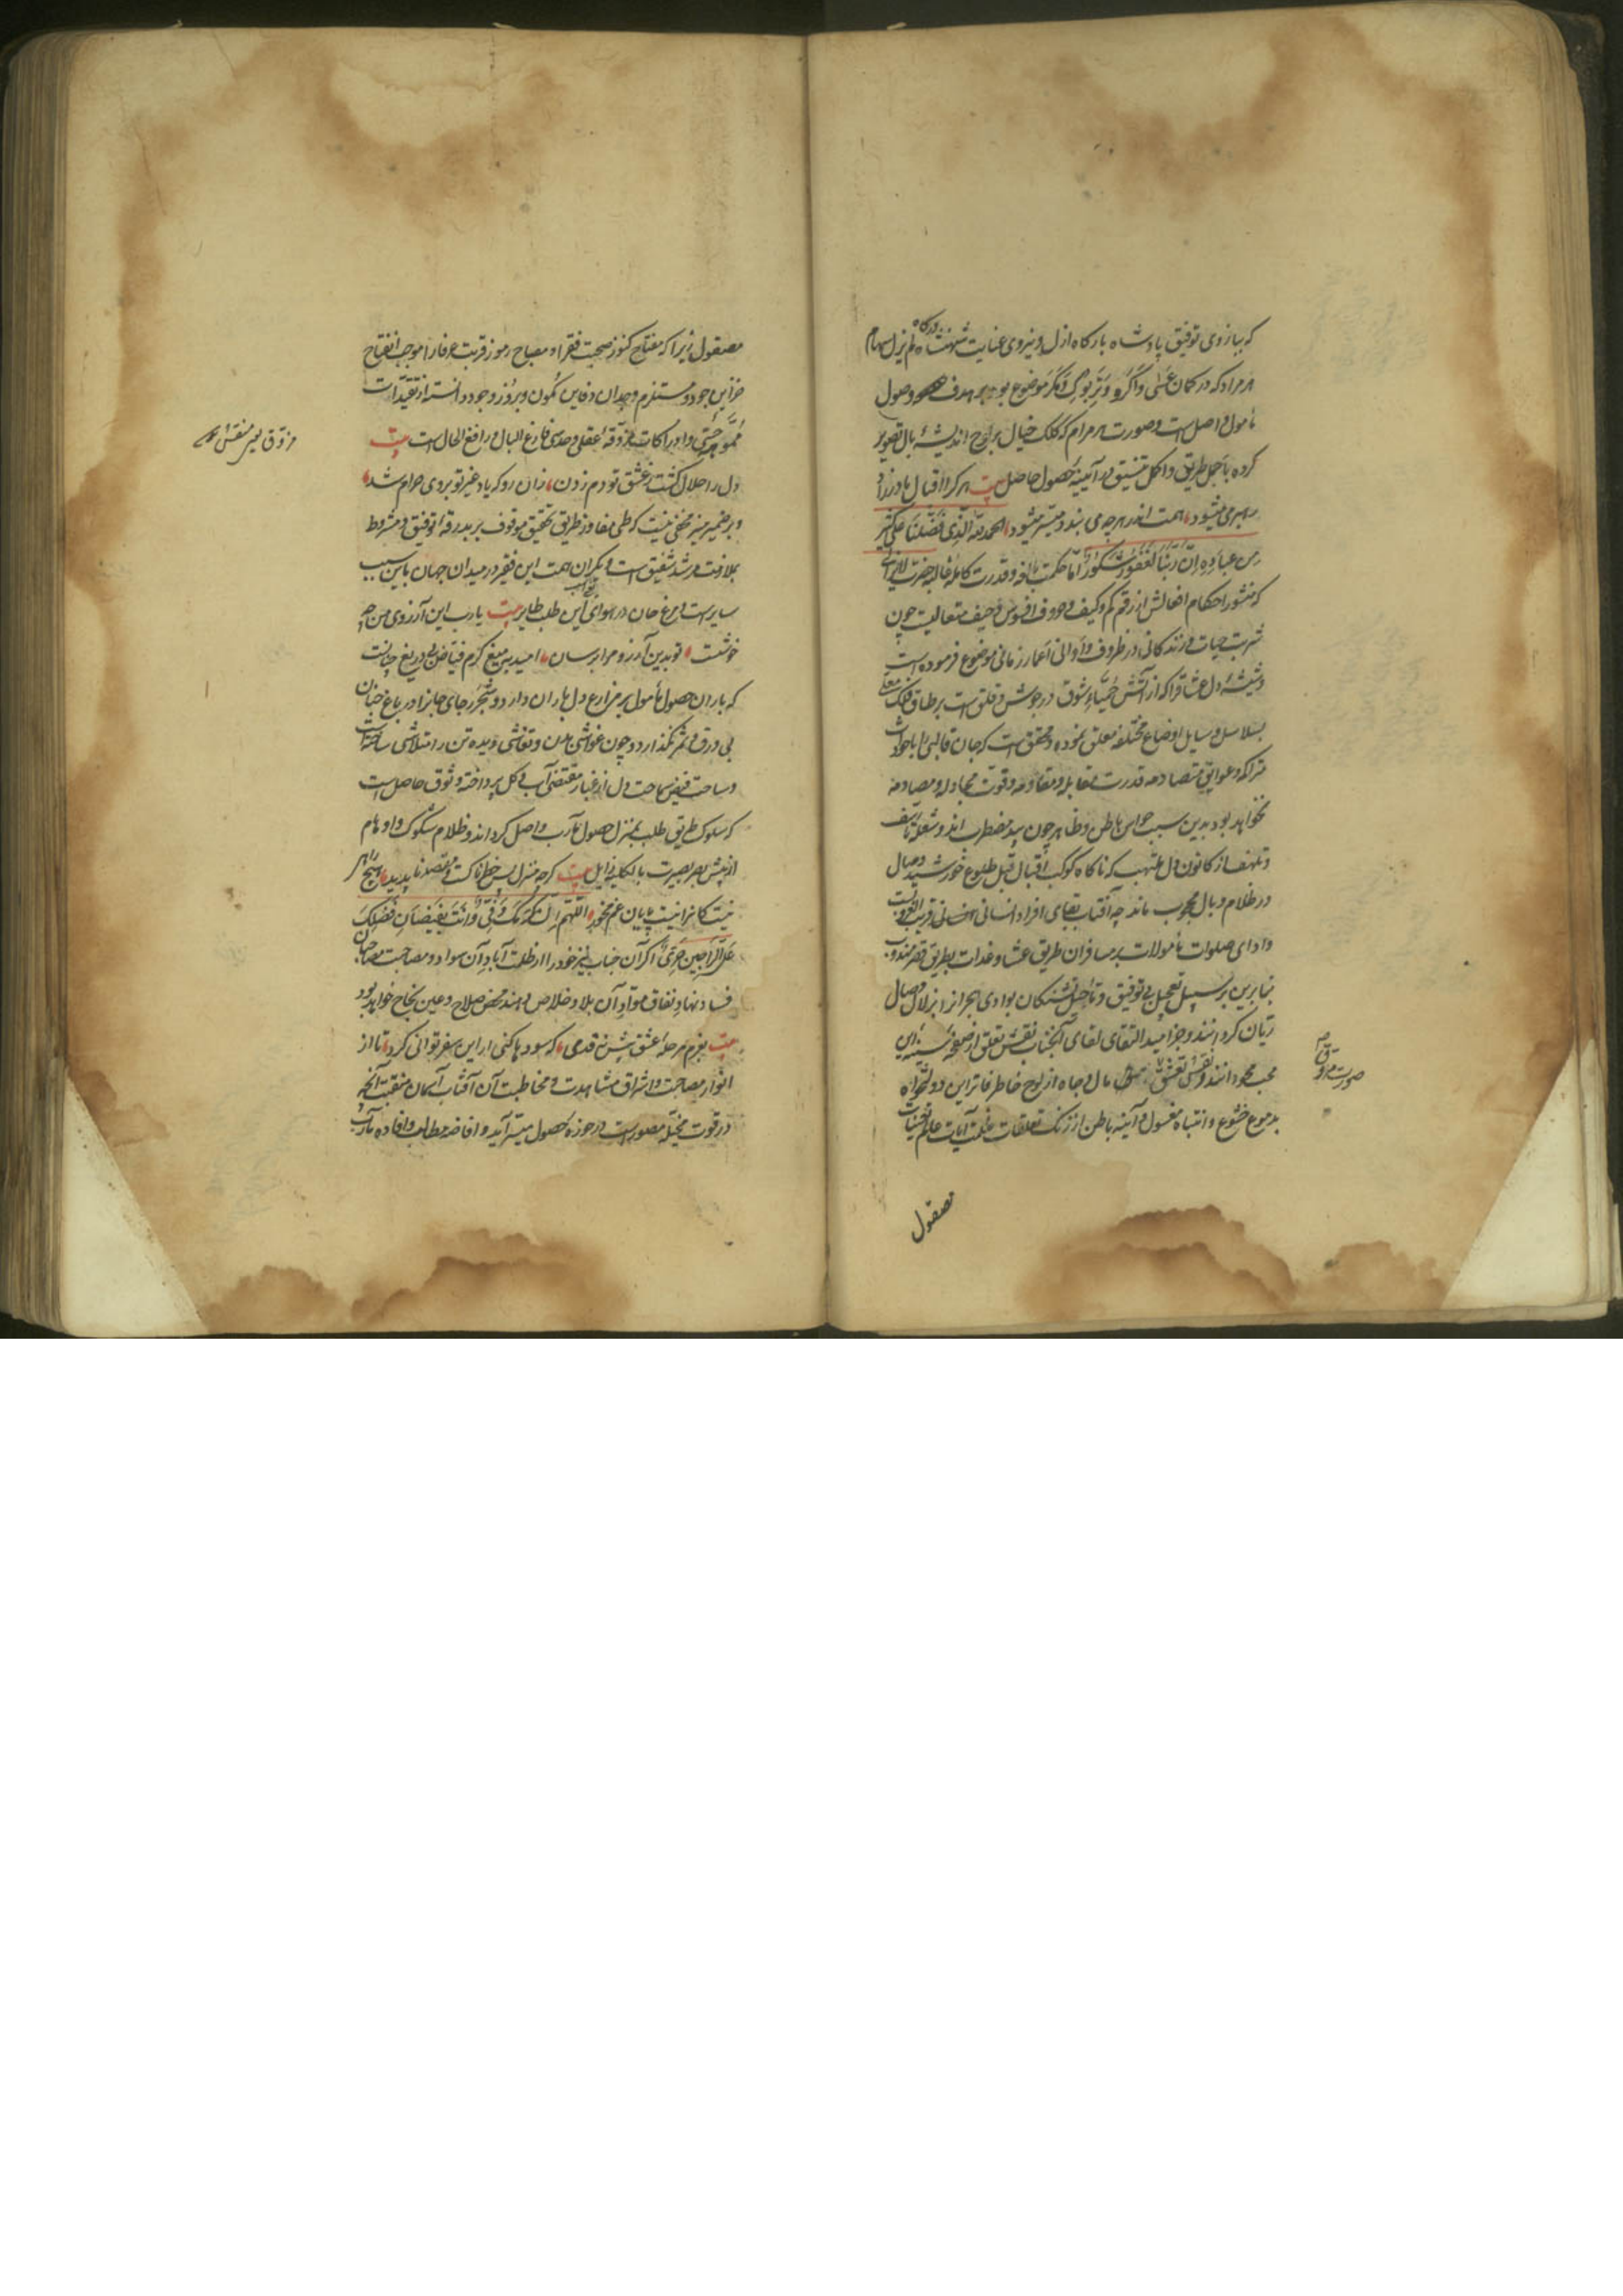 که ببازوی توفیق پادشاه بارکاه ازل و نیروی عنایت شهنشاه درکاه لم یزل سهام
هر مراد که در کمان عسی و اگر و وتر بوک و مگر موضوع بود بر هدف وصول
مأمول واصل است و صورت هر مرام که کلک خیال بر لوح اندیشهٔ بال تصویر
کرده باجمل طریق و اکمل تنسیق در آیینهٔ حصول حاصل بیت هر کرا اقبال مادرزاد
رهبر می شود همت اندر هرچه می بندد میسر میشود الحمد لله الذی فضلنا علی کثیر
من عباده ان ربنا لغفور شکور اما حکمت بالغه و قدرت کاملهٔ غالبه حضرت لایزالی
که منشور احکام افعالش از رقم کم و کیف و حروف افسوس و حیف متعالیست چون
شربت حیات و زندکانی در ظروف و اوانی اعمار زمانی موضوع فرموده است
و شیشهٔ دل عشاق را که از آتش حمیاء شوق در جوش و قلق است بر طاق فلک معلی
بسلاسل وسایل اوضاع مختلفه معلق نموده و محقق است که جان قالبی را با حوادث
متراکمه و عوایق متصادمه قدرت مقابله و مقاومه و قوت مجادله و مصادمه
نخواهد بود بدین سبب حواس باطن و ظاهر چون بید مضطرب اند و شعلهٔ تأسف
و تلهف از کانون دل ملتهب که ناکاه کوکب اقبال قبل طلوع خورشید وصال
در ظلام وبال محجوب ماند چه آفتاب بقای افراد انسانی قریب الغروبست
و ادای صلوات مأمولات بر مسافران طریق عشا و غدات بطریق قصر مندوب
بنابرین بر سبیل تعجیل بی توفیق و تأجیل تشنکان بوادی هجر را از زلال وصال
ریان کردانند و جز امید التقای لقای آنجناب نقش تعلق از صفحهٔ سینهٔ این
محب محو دانند و نقش تعشق مال و جاه از لوح خاطر فاتر این دولتخواه
بدموع خشوع و انتباه مغسول و آیینه باطن از زنک تعلقات ظلمت آیات عالم تعینات
صورت
مصقول
مصقول زیرا که مفتاح کنوز صحبت فقرا و مصباح رموز قربت عرفا را موجب انفتاح
خزاین جود و مستلزم وجدان دفاین کمون و بروز وجود دانسته از تقیدات
مموهه حسی و ادراکات مزوقهٔ عقلی و حدسی فارغ البال و رافع الحال است بیت
دل را حلال کشت ز عشق تو دم زدن زان رو که یاد غیر تو بروی حرام شد
و بر ضمیر منیر مخفی نیست که طی مفاوز طریق تحقیق موقوف بر بدرقهٔ توفیق و مشروط
بملازمت مرشد شفیق است و یکران همت این فقیر در میدان جهان باین سبب
سایرست و مرغ جان در هوای این طلب طایر بیت یا رب این آرزوی من چه
خوشست تو بدین آرزو مرا برسان امید بمیغ کرم فیاض بی دریغ چنانست
که باران حصول مأمول بر مزارع دل باران دارد و شجر رجای جانرا در باغ جنان
بی ورق و ثمر نکذارد و چون غواشی بدن و تغاشی دیده تن را متلاشی ساخته است
و ساحت فیض سماحت دل از غبار مقتضی آب و کل پرداخته وثوق حاصل است
که سلوک طریق طلب بمنزل حصول مآرب واصل کرداند و ظلام شکوک و اوهام
از پیش بصر بصیرت بالکلیه زایل بیت کرچه منزل بس خطرناکست و مقصد ناپدید هیچ راهی
نیست کانرا نیست پایان غم مخور اللهم
علی الراجین حری اکر آن جناب نیز خود را از ظلمت آباد آن سواد و مصاحبت مصاحبان
فساد نهاد نفاق مواد آن بلاد خلاص دهند محض صلاح و عین نجاح خواهد بود
بیت بعزم مرحلهٔ عشق پیش نه قدمی که سودها کنی ار این سفر توانی کرد تا از
انوار مصاحبت و اشراق مشاهدت و مخاطبت آن آفتاب آسمان منقبت آنچه
در قوت مخیله مصورست در حوزه حصول میسر آید و افاضه مطالب و افاده مآرب
مزوق یعنی منقش